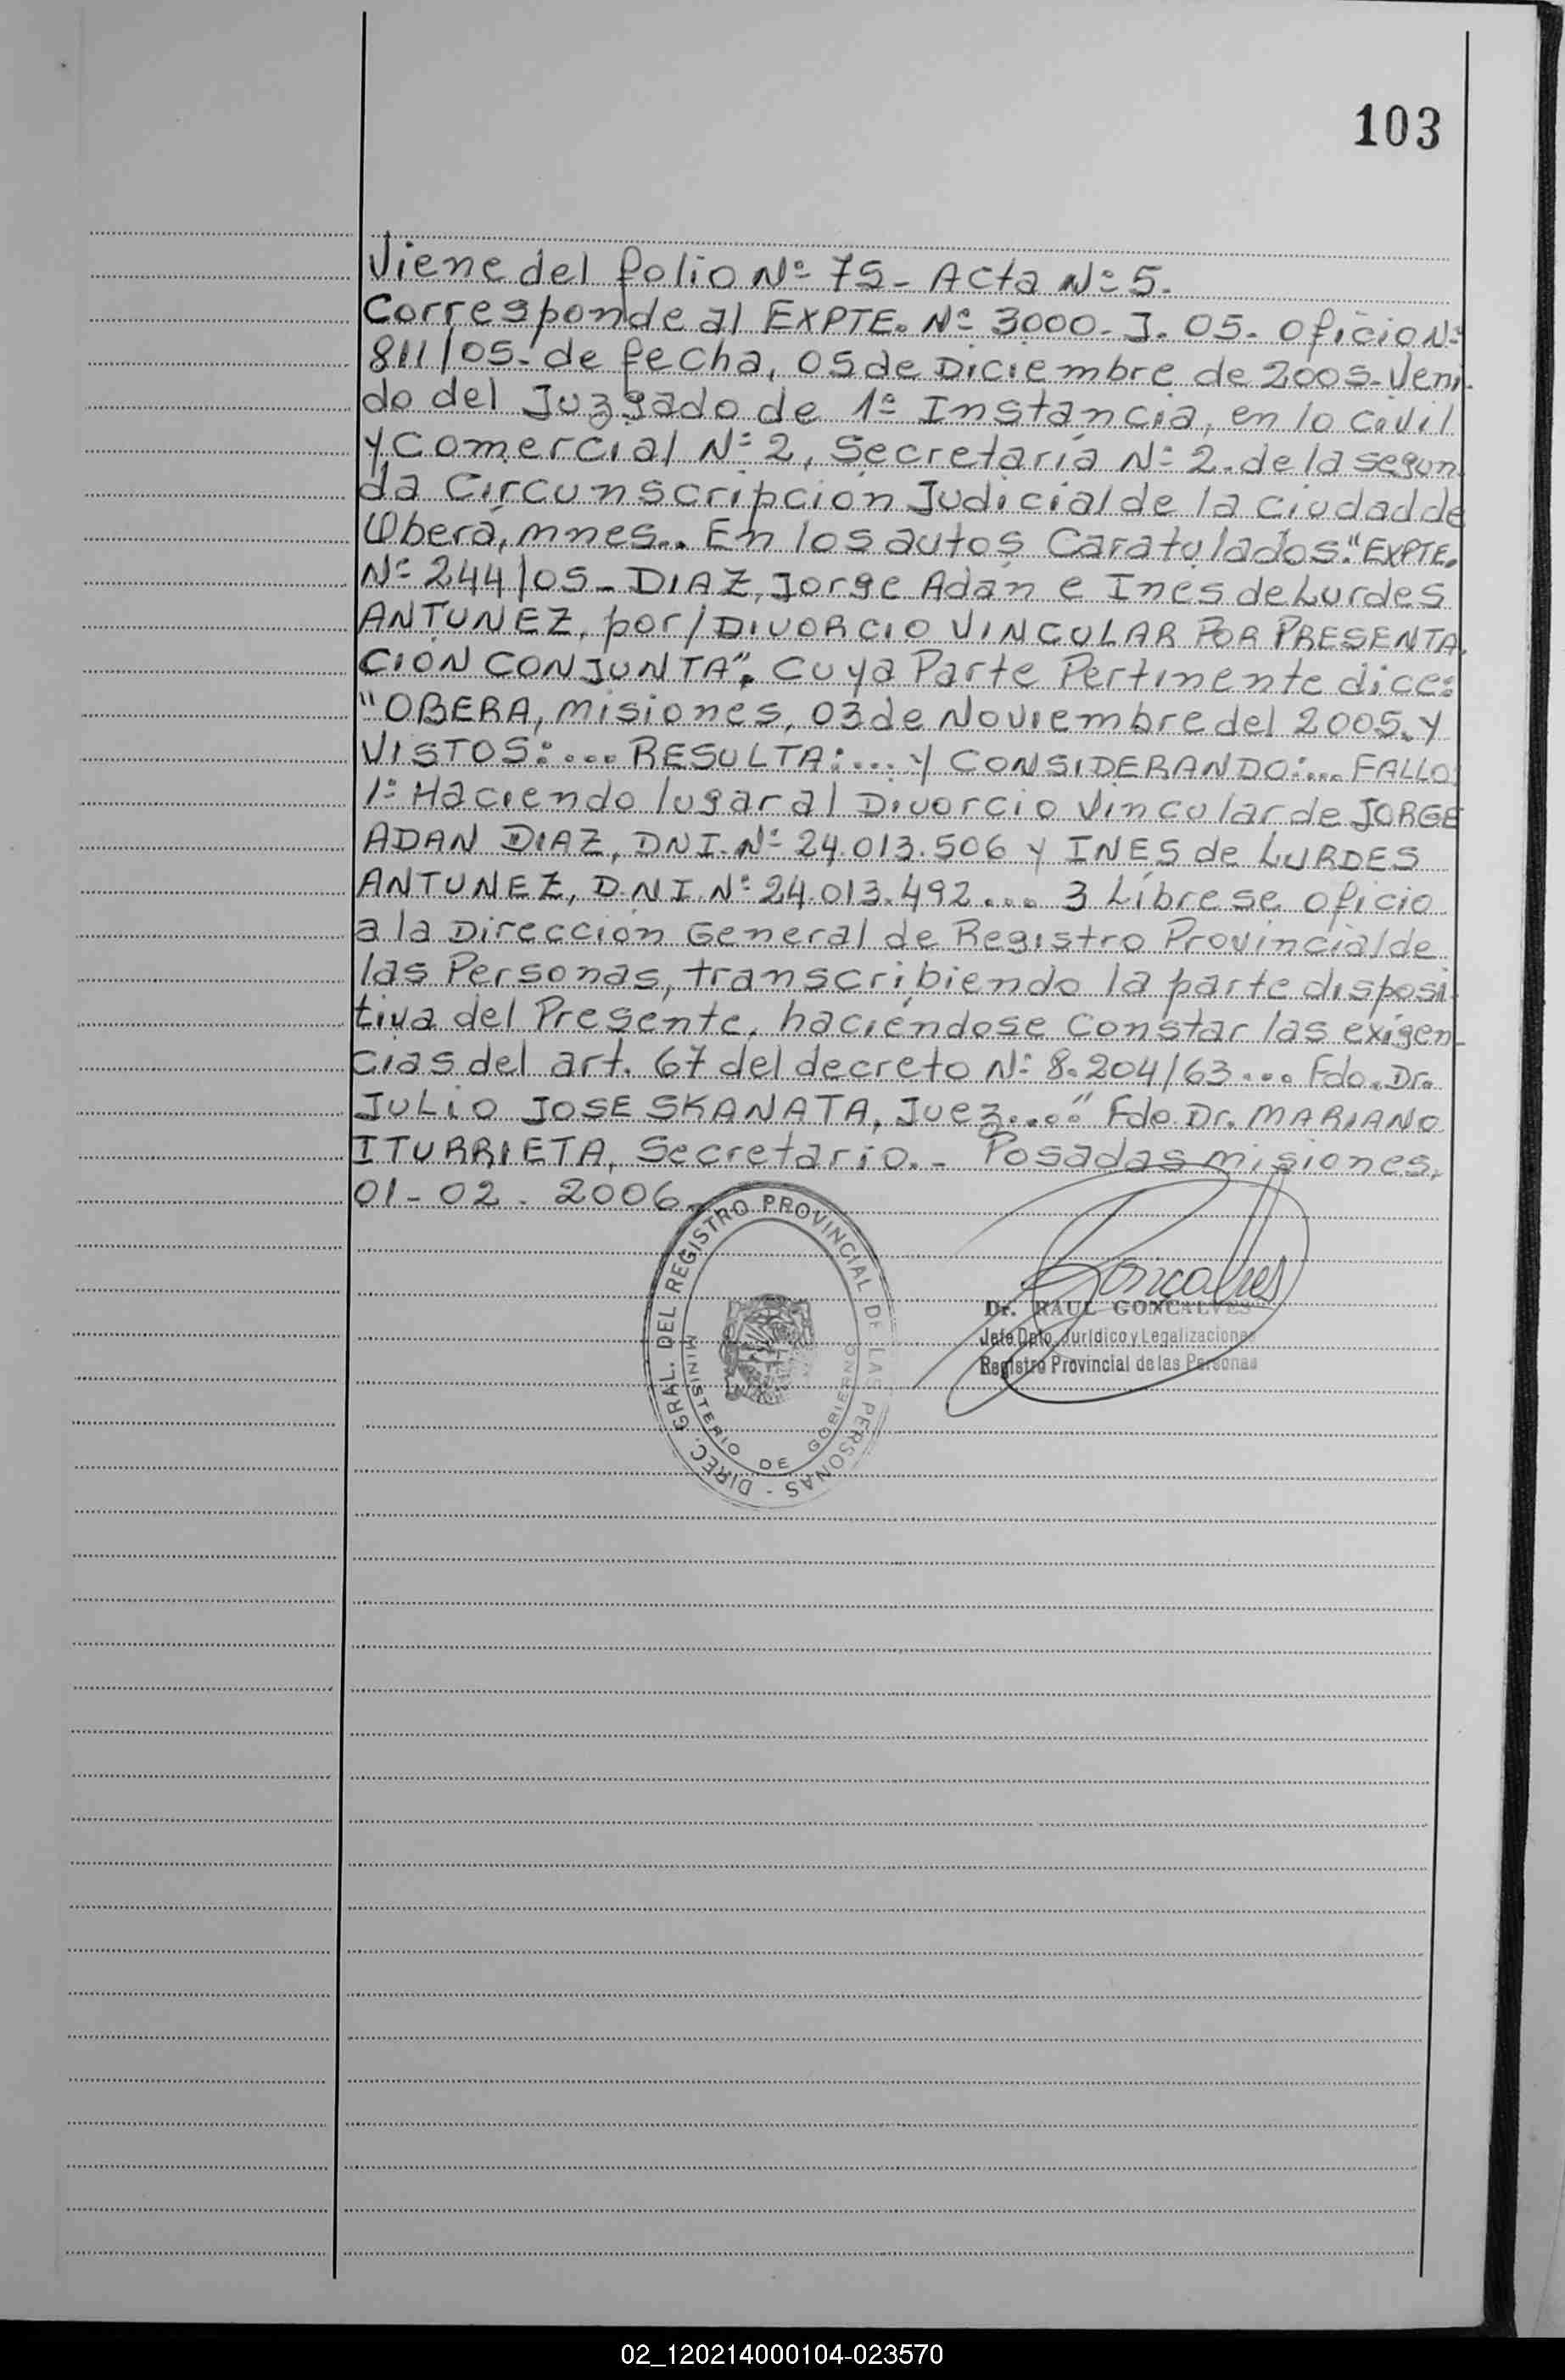 103
Viene del folio Nº 75- Acta Nº 5.
Corresponde al EXPTE. Nº 3000- J. 05- oficio Nº
811/05- de fecha, 05 de Diciembre de 2005- Veni-
do del Juzgado de 1º Instancia, en lo Civil
y Comercial Nº 2, Secretaría Nº 2. de la segun-
da Circunscripción Judicial de la ciudad de
Oberá, mnes.. En los autos Caratulados: "EXPTE.
Nº 244/05- DIAZ, Jorge Adán e Ines de Lurdes
ANTUNEZ, por/ DIVORCIO VINCULAR POR PRESENTA-
CION CONJUNTA". Cuya Parte Pertinente dice:
"OBERA, misiones, 03 de Noviembre del 2005. y
VISTOS:... RESULTA:... y CONSIDERANDO:... FALLO:
1º Haciendo lugar al Divorcio Vincular de JORGE
ADAN DIAZ, DNI. Nº 24.013.506 y INES de LURDES
ANTUNEZ, D.N.I. Nº 24.013.492... 3 Líbrese oficio
a la Dirección General de Registro Provincial de
las Personas, transcribiendo la parte disposi-
tiva del Presente, haciéndose Constar las exigen-
cias del art. 67 del decreto Nº 8.204/63... Fdo. Dr.
JULIO JOSE SKANATA, Juez...." Fdo. Dr. MARIANO
ITURRIETA, Secretario.- Posadas misiones,
01-02-2006.
DIREC. GRAL. DEL REGISTRO PROVINCIAL DE LAS PERSONAS -
MINISTERIO DE GOBIERNO
Goncalves
Dr. RAUL GONCALVES
Jefe Dpto. Jurídico y Legalizaciones
Registro Provincial de las Personas
02_120214000104-023570